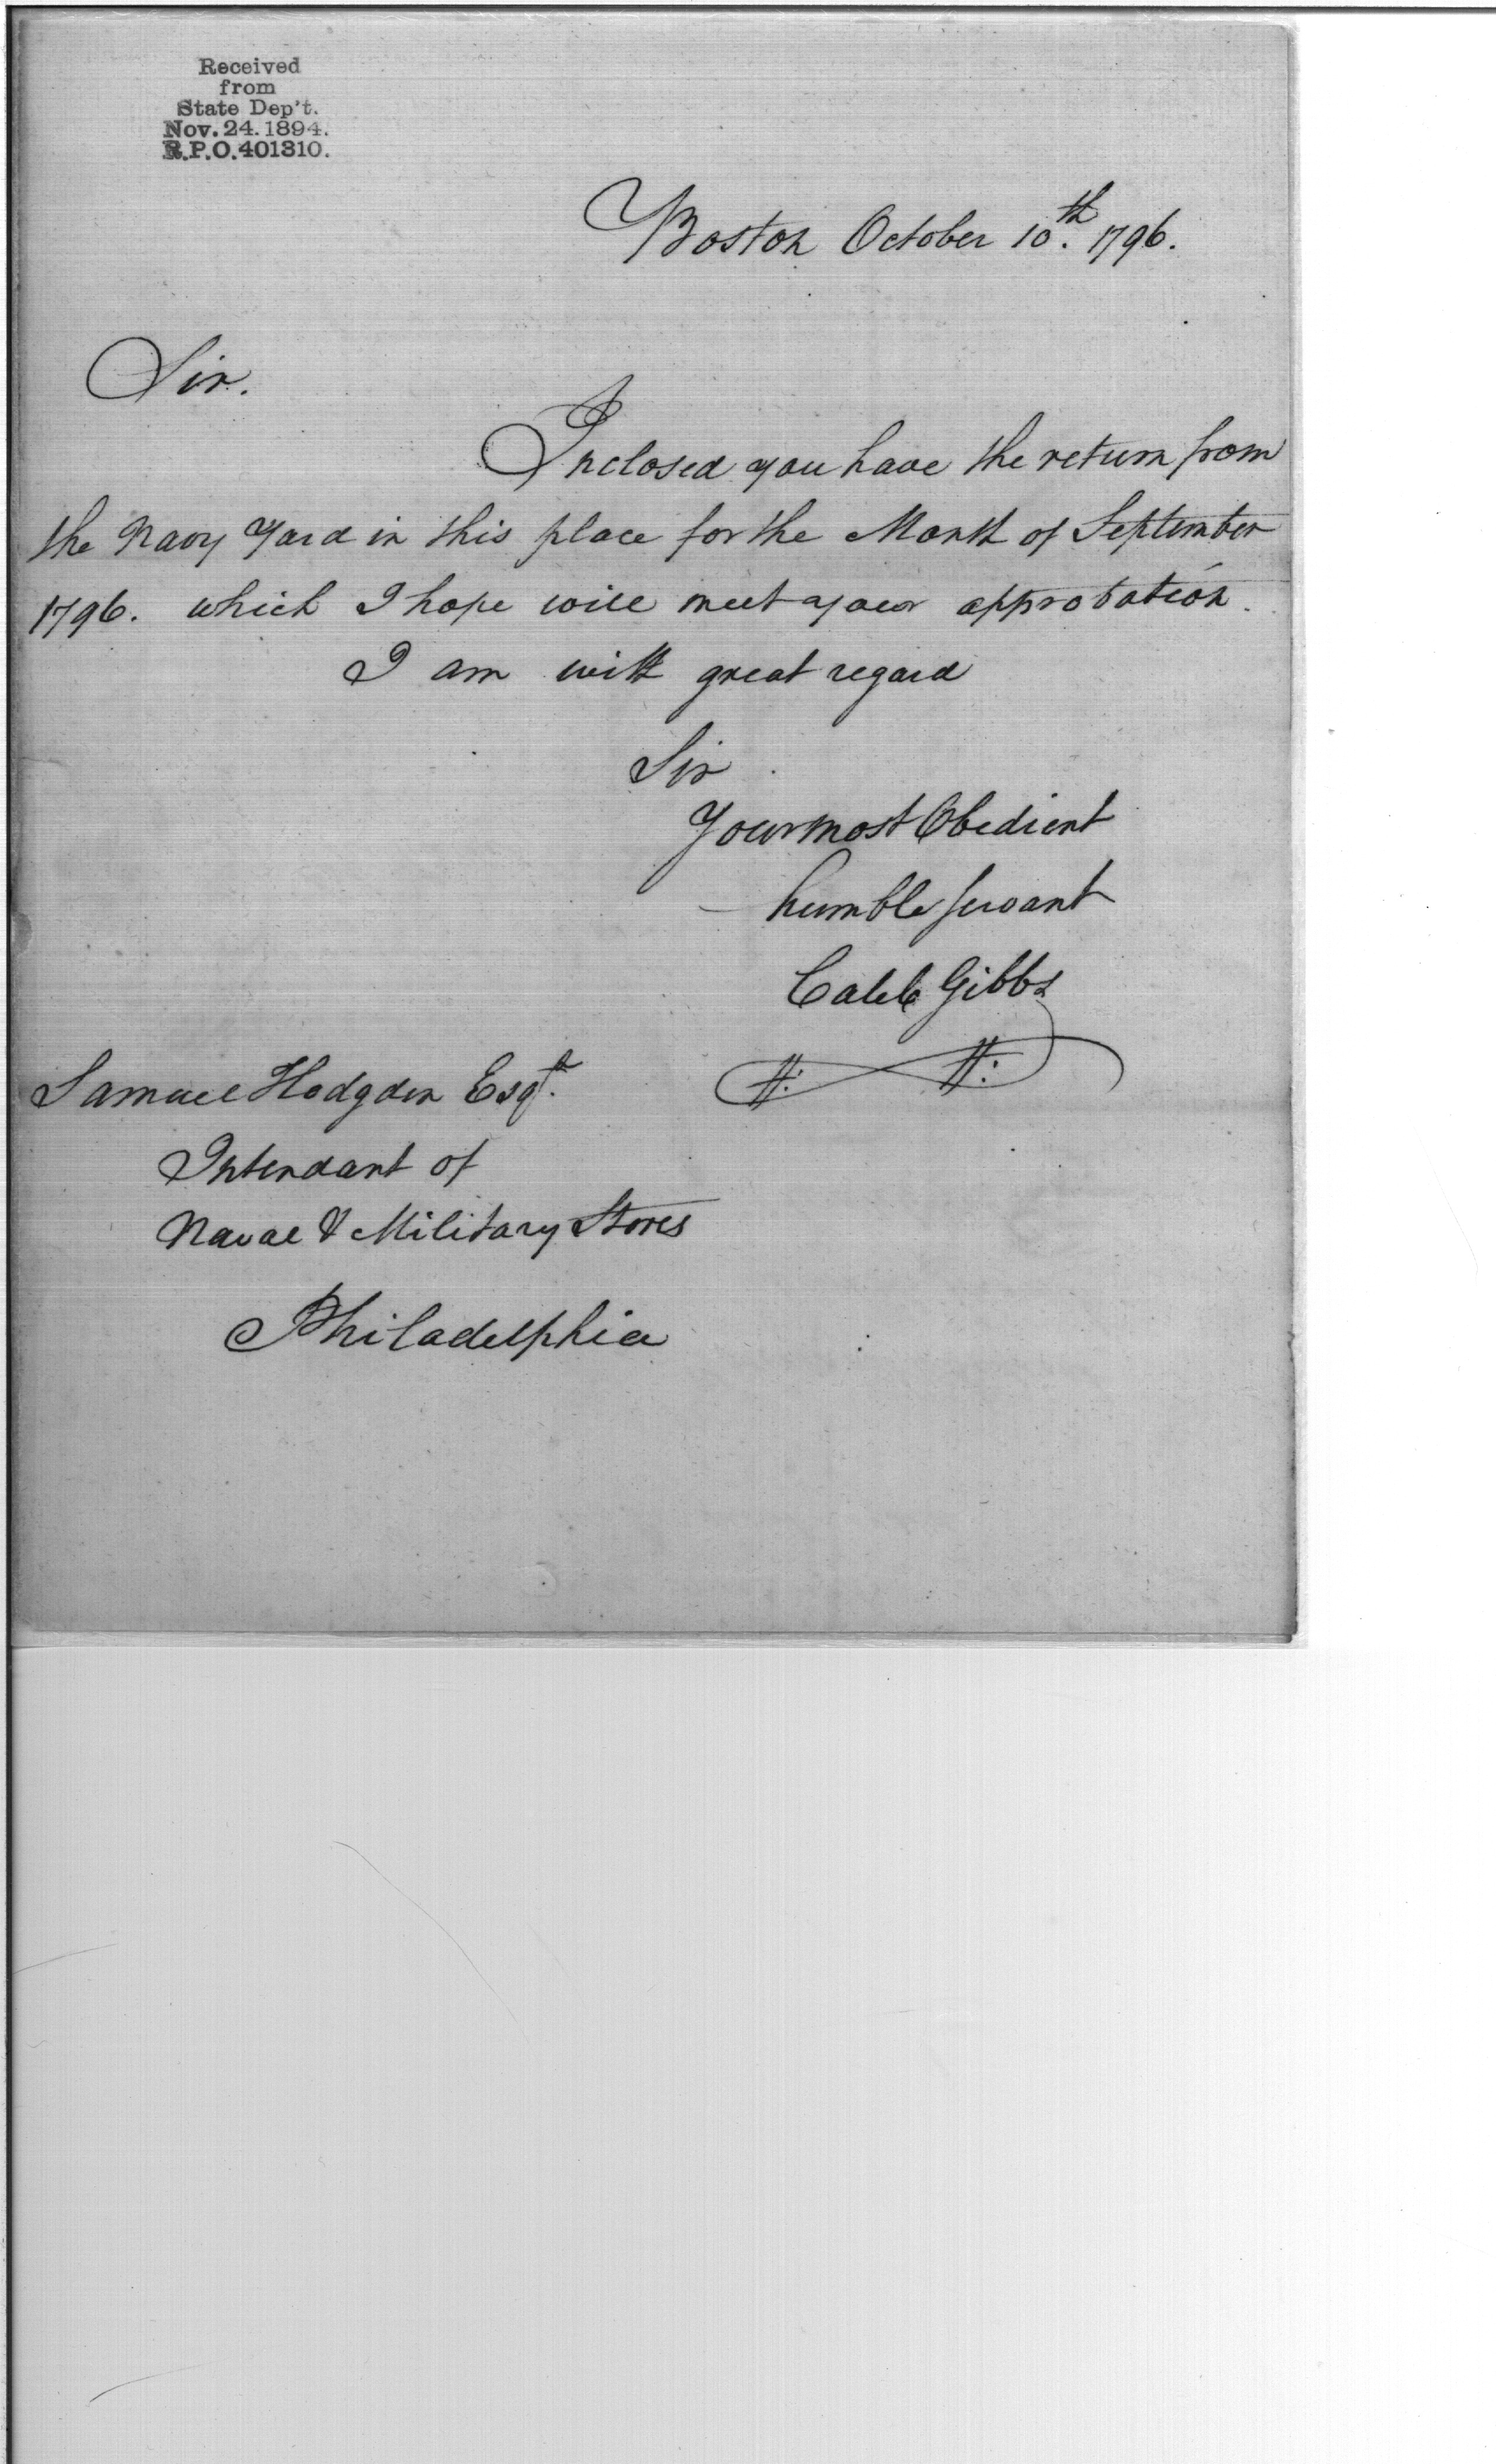 Received
from
State Dep't.
Nov. 24. 1894.
R.P.O. 401310.
Boston October 10th. 1796.
Sir.
Inclosed you have the return from
the Navy Yard in this place for the Month of September
1796. which I hope will meet your approbation.
I am with great regard
Sir
Your most Obedient
humble servant
Caleb Gibbs
Samuel Hodgdon Esqr.
Intendant of
Naval & Military Stores
Philadelphia